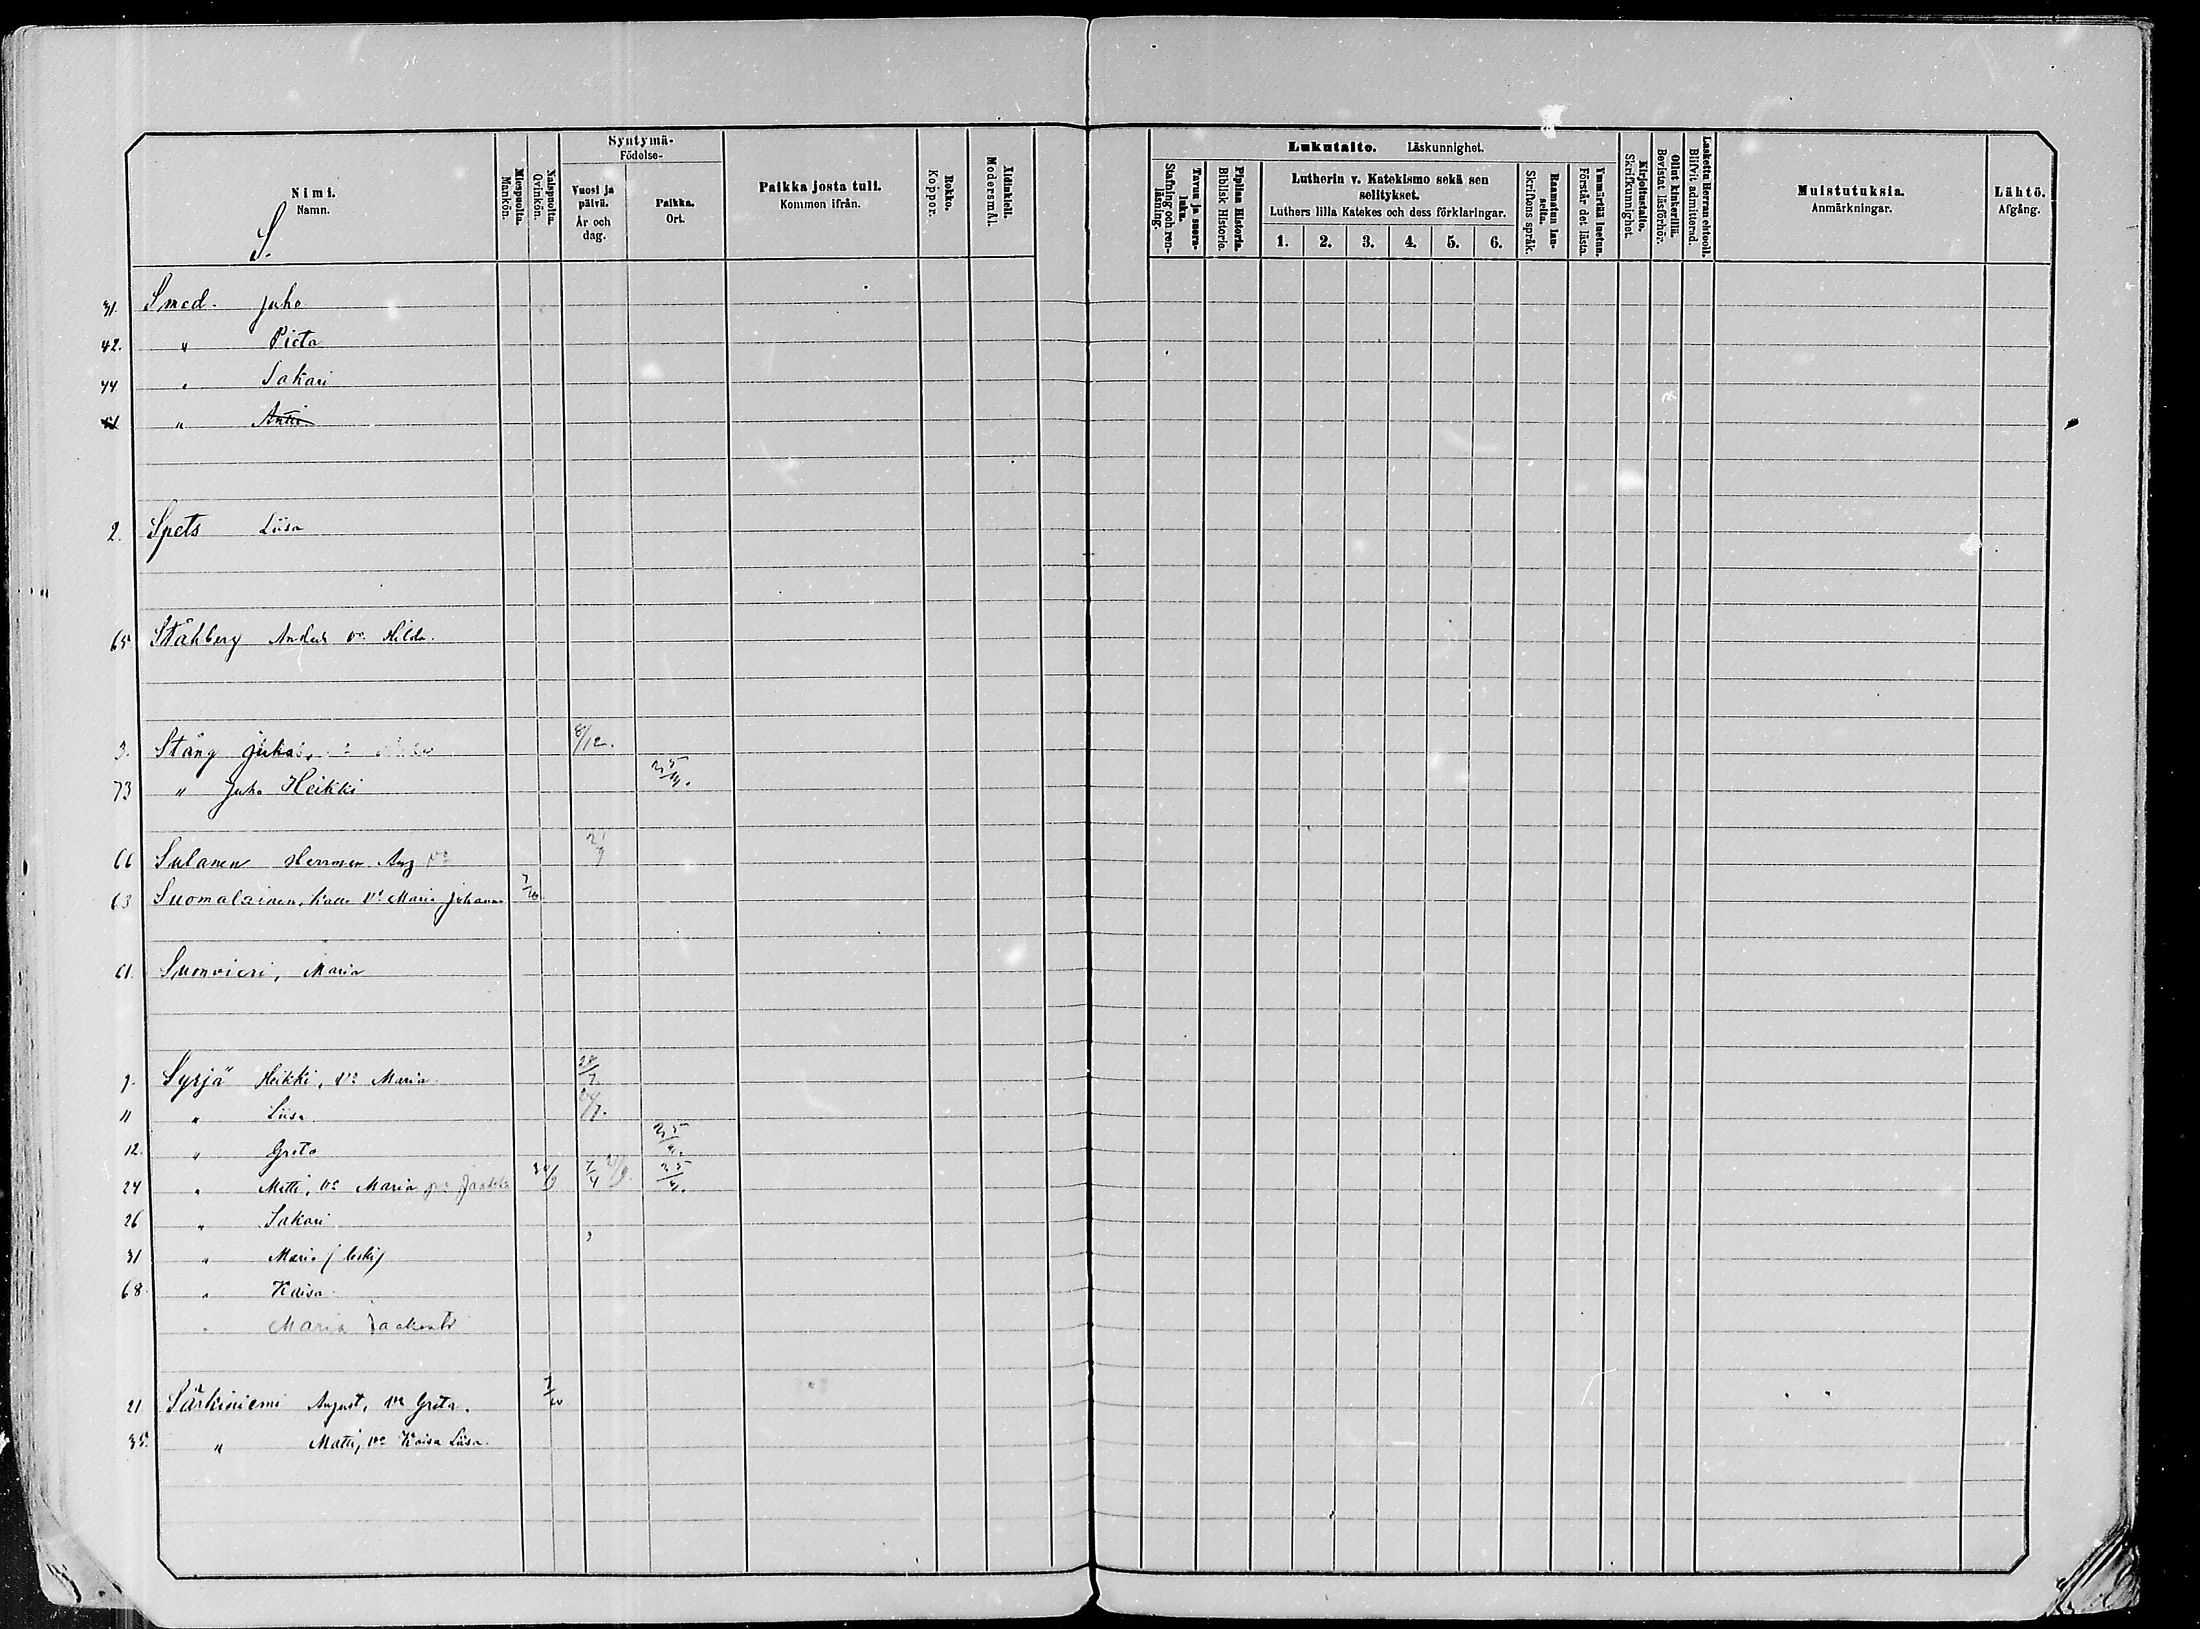 Nimi.
Namn.
S.
Miespuolta.
Mankön.
Naispuolta.
Qvinkön.
Syntymä-
Födelse-
Vuosi ja
päivä.
År och
dag.
Paikka.
Ort.
Paikka josta tuli.
Kommen ifrån.
Rokko.
Koppor.
Äidinkieli.
Modersmål.
Lukutaito. Läskunnighet.
Tavuu ja suora-
luku.
Stafning och ren-
läsning.
Piplian Historia.
Biblisk Historie.
Lutherin v. Katekismo sekä sen
selitykset.
Luthers lilla Katekes och dess förklaringar.
1. 2. 3. 4. 5. 6.
Raamatun lau-
seita.
Skriftens språk.
Ymmärtää luetun.
Förstår det lästa.
Kirjoitustaito.
Skrifkunnighet.
Ollut kinkerillä.
Bevistat läsförhör.
Laskettu Herran ehtoolle.
Blifvit admitterad.
Muistutuksia.
Anmärkningar.
Lähtö.
Afgång.
31. Smed. Juho
42. " Pieta
44 " Sakari
" Antti
2. Spets Liisa
65 Ståhlberg Anders vo Hilda.
3. Stång Juho 8/12.
73 " Juho Heikki 25/4.
66 Sulanen Herman Aug vo
63 Suomalainen, Kalle vo Maria Johanna 7/10
61. Suonvieri, Maria
9. Syrjä Heikki, vo Maria 28/7
11 " Liisa
12. " Greta 25/4.
24 " Matti, vo Maria 30/9 7/4 25/4.
26 " Sakari
31 " Maria (leski)
68. " Kaisa
" Maria Jaakontr
21 Särkiniemi August, vo Greta. 7/10
35. " Matti, vo Kaisa Liisa.